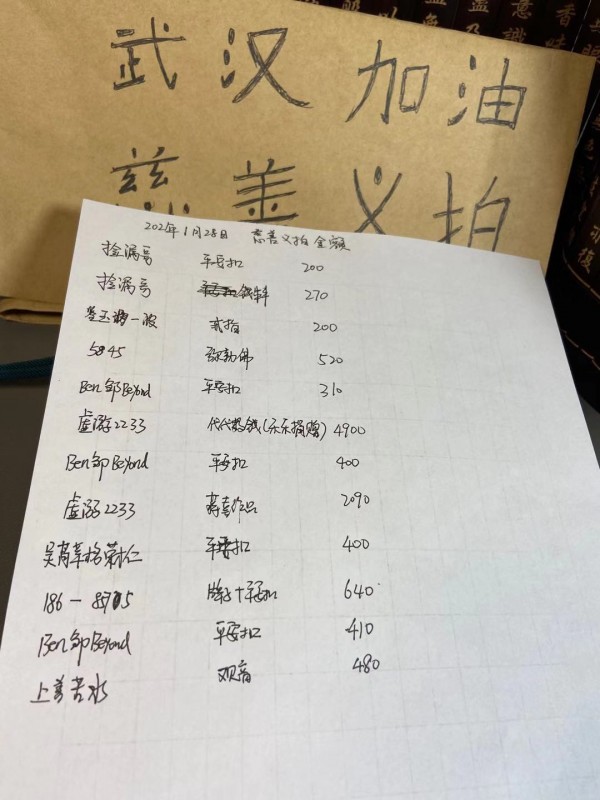 武汉加油
慈善义拍
202年1月28日 慈善义拍金额
捡漏哥 平安扣 200
捡漏哥 270
一波 戒指 200
5845 弥勒佛 520
Ben邹Beyond 平安扣 310
虚游2233 代代数钱(乐乐捐赠) 4900
Ben邹Beyond 平安扣 400
虚游2233 作品 2090
平安扣 400
186- 牌子+平安扣 640
Ben邹Beyond 平安扣 410
上善若水 观音 480